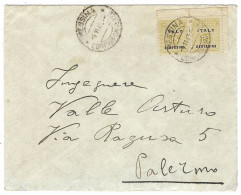 MESSINA
ITALY
ITALY
CENTESIMI
CENTESIMI
Ingegnere
Valle Arturo
Via Ragusa 5
Palermo